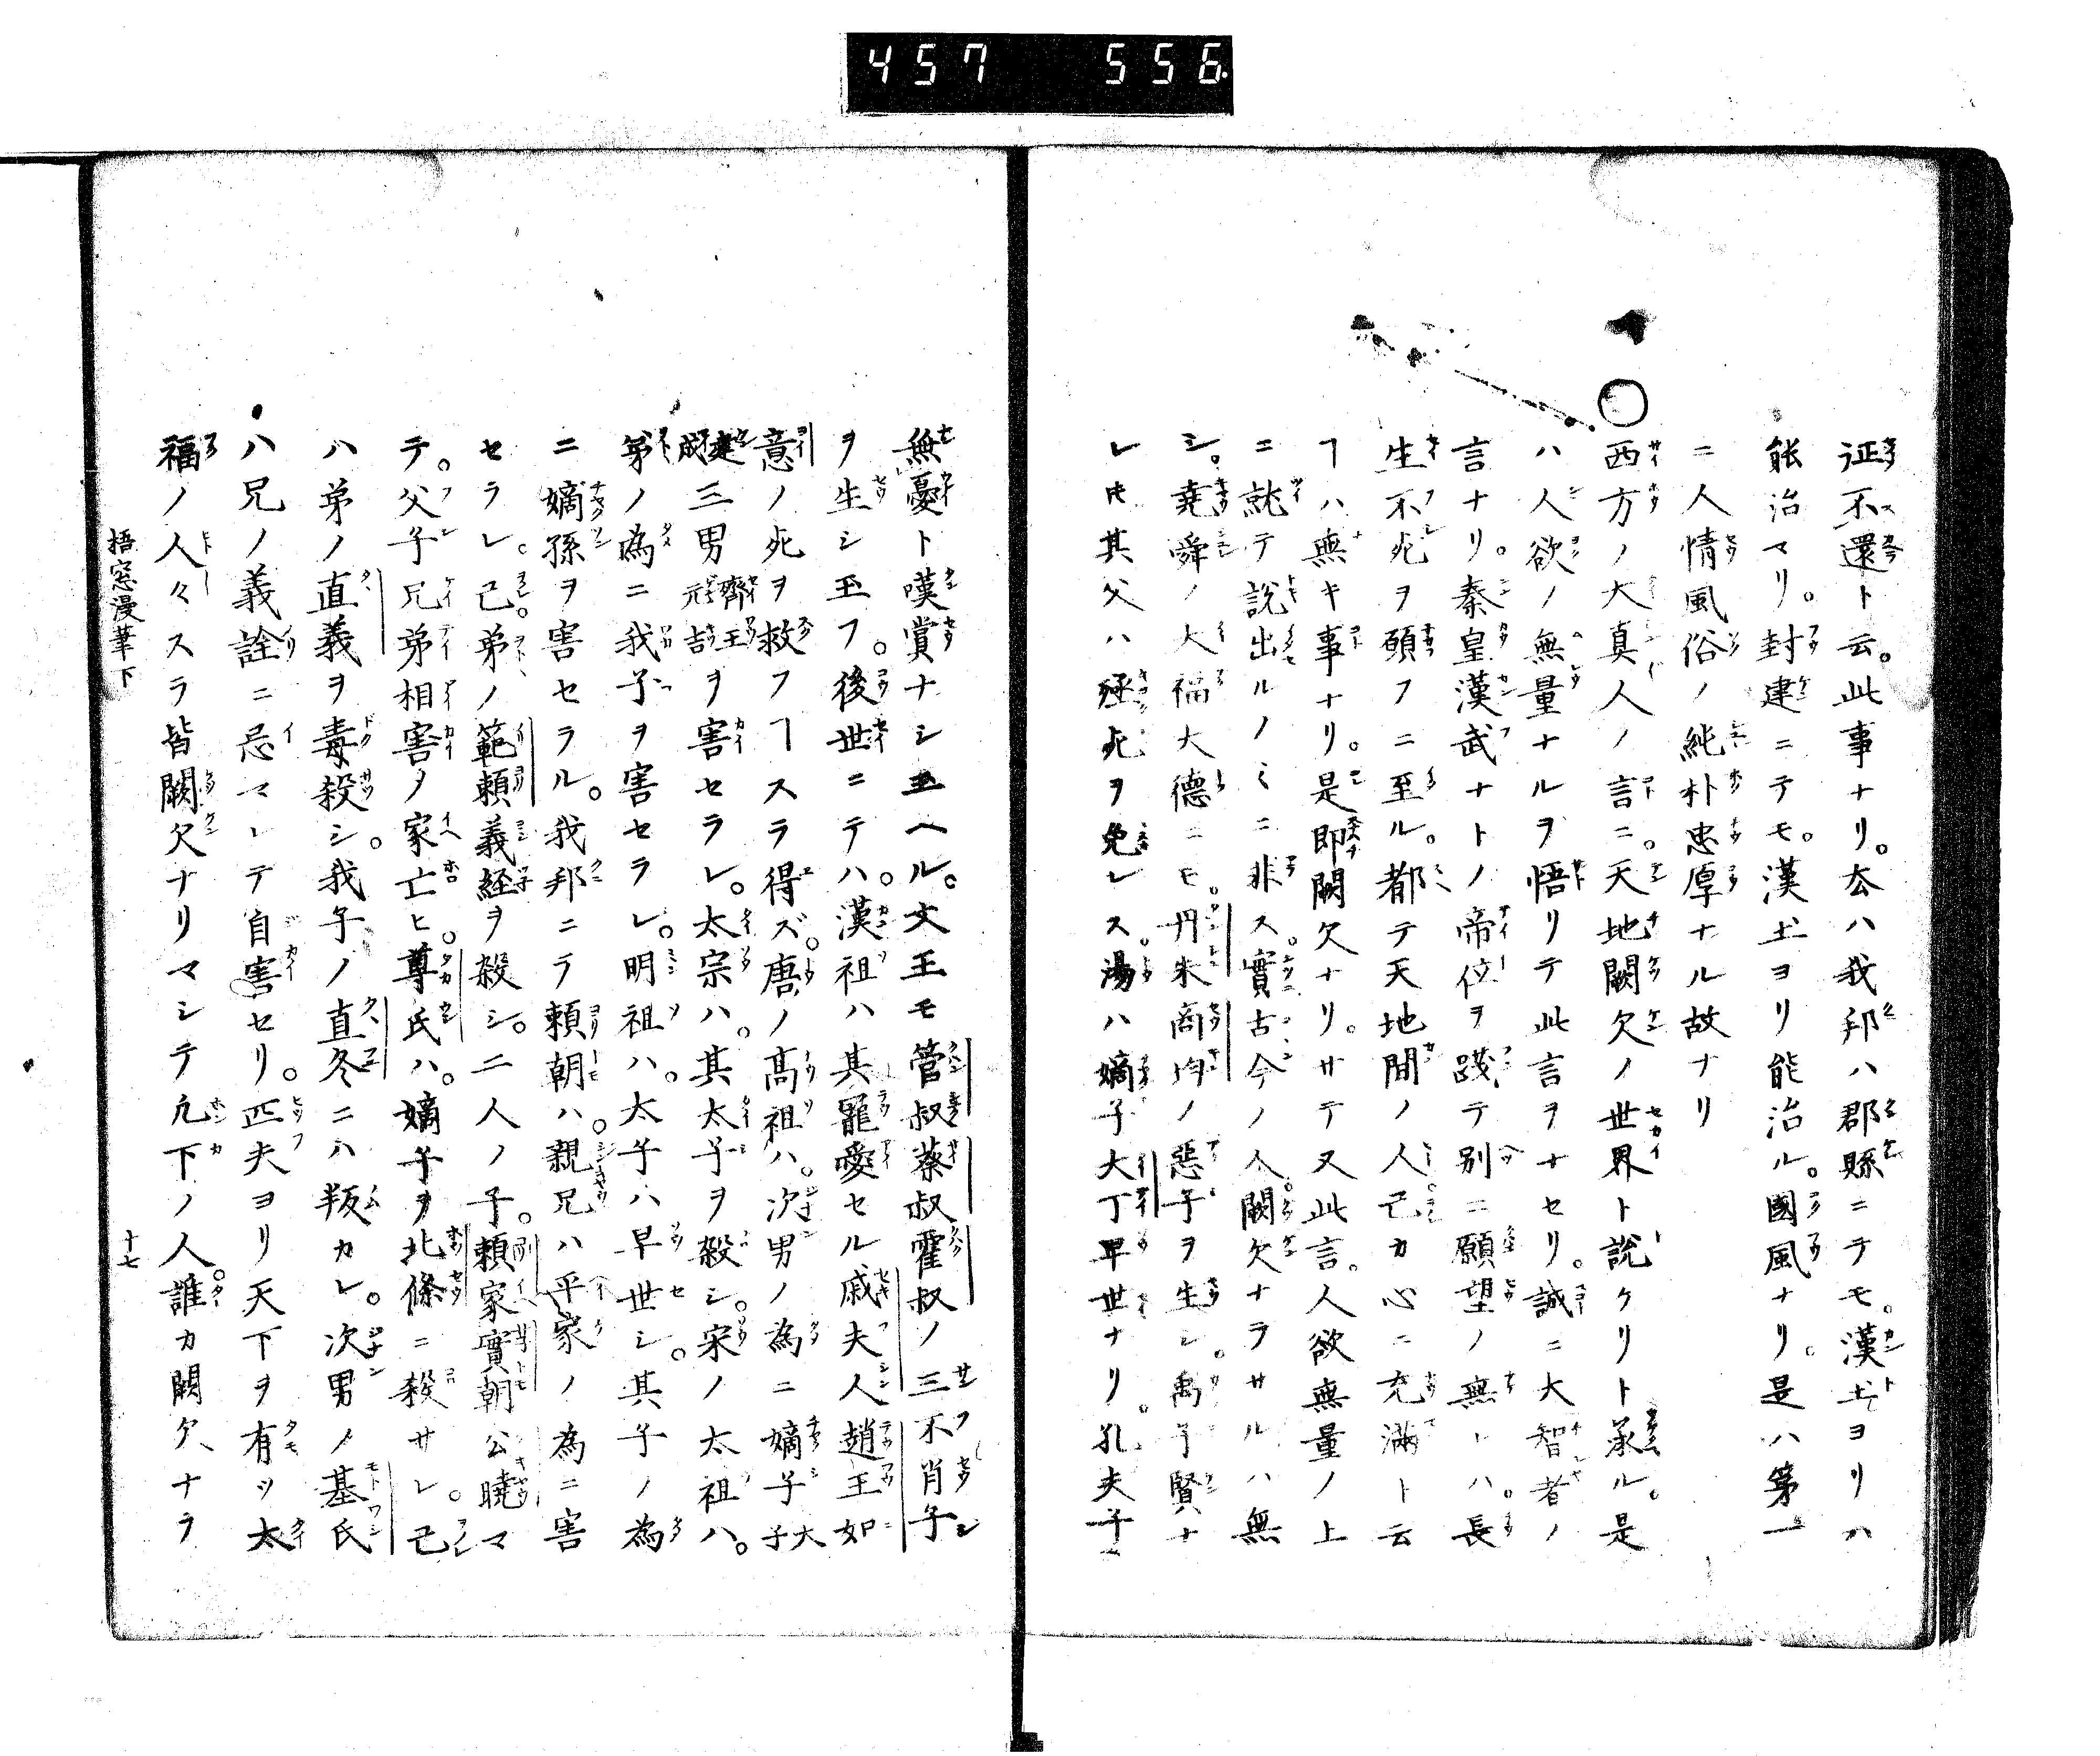 457 556
征不還ト云。此事ナリ。夲ハ我邦ハ郡縣ニテモ。漢土ヨリハ
能治マリ。封建ニテモ。漢土ヨリ能治ル。國風ナリ。是ハ第一
ニ人情風俗ノ純朴忠厚ナル故ナリ
○西方ノ大真人ノ言ニ。天地闕欠ノ世界ト説クリト承ル。是
ハ人欲ノ無量ナルヲ悟リテ此言ヲナセリ。誠ニ大智者ノ
言ナリ。秦皇漢武ナトノ帝位ヲ踐テ別ニ願望ノ無レハ。長
生不死ヲ願フニ至ル。都テ天地間ノ人己カ心ニ充滿ト云
ヿハ無キ事ナリ。是即闕欠ナリ。サテ又此言。人欲無量ノ上
ニ就テ説出ルノミニ非ス。實古今ノ人。闕欠ナラサルハ無
シ。堯舜ノ大福大德ニモ。丹朱商均ノ惡子ヲ生シ。禹子賢ナ
レ𪜈其父ハ殛死ヲ免レス。湯ハ嫡子大丁早世ナリ。孔夫子
無憂ト嘆賞ナシ玉ヘル。文王モ管叔蔡叔霍叔ノ三不肖子
ヲ生シ玉フ。後世ニテハ。漢祖ハ其寵愛セル戚夫人趙王如
意ノ死ヲ救フヿスラ得ズ。唐ノ高祖ハ。次男ノ為ニ嫡子大子
建成三男齊王元吉ヲ害セラレ。太宗ハ。其太子ヲ殺シ。宋ノ太祖ハ。
弟ノ為ニ我子ヲ害セラレ。明祖ハ。太子ハ早世シ。其子ノ為
ニ嫡孫ヲ害セラル。我邦ニテ頼朝ハ親兄ハ平家ノ為ニ害
セラレ。己。弟ノ範頼義経ヲ殺シ。二人ノ子。頼家實朝公曉マ
テ。父子兄弟相害ノ家亡ヒ。尊氏ハ。嫡子ヲ北條ニ殺サレ。己
ハ弟ノ直義ヲ毒殺シ。我子ノ直冬ニハ叛カレ。次男ノ基氏
ハ兄ノ義詮ニ忌マレテ自害セリ。匹夫ヨリ天下ヲ有ツ太
福ノ人々スラ皆闕欠ナリマシテ凢下ノ人。誰カ闕欠ナラ
梧窓漫筆下 十七